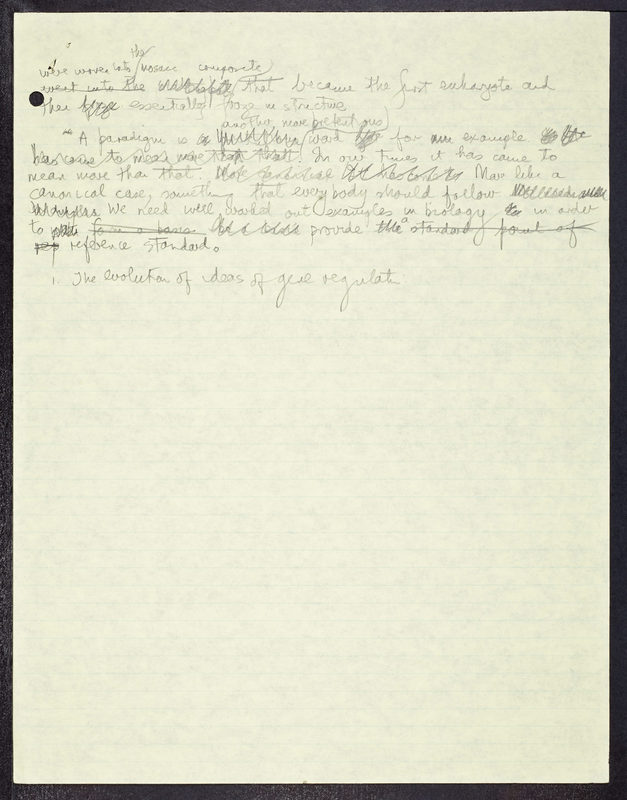 the
were woven into mosaic composite
went into the that became the first eukaryote and
then essentially froze in structure
another, more pretentious
A paradigm is a word for an example
has come to mean more than that. In our times it has come to
mean more than that. More like a
canonical case, something that everybody should follow
We need well worked out examples in biology in order
to form a basis provide the a standard point of
rep reference standard.
1. The evolution of ideas of gene regulation